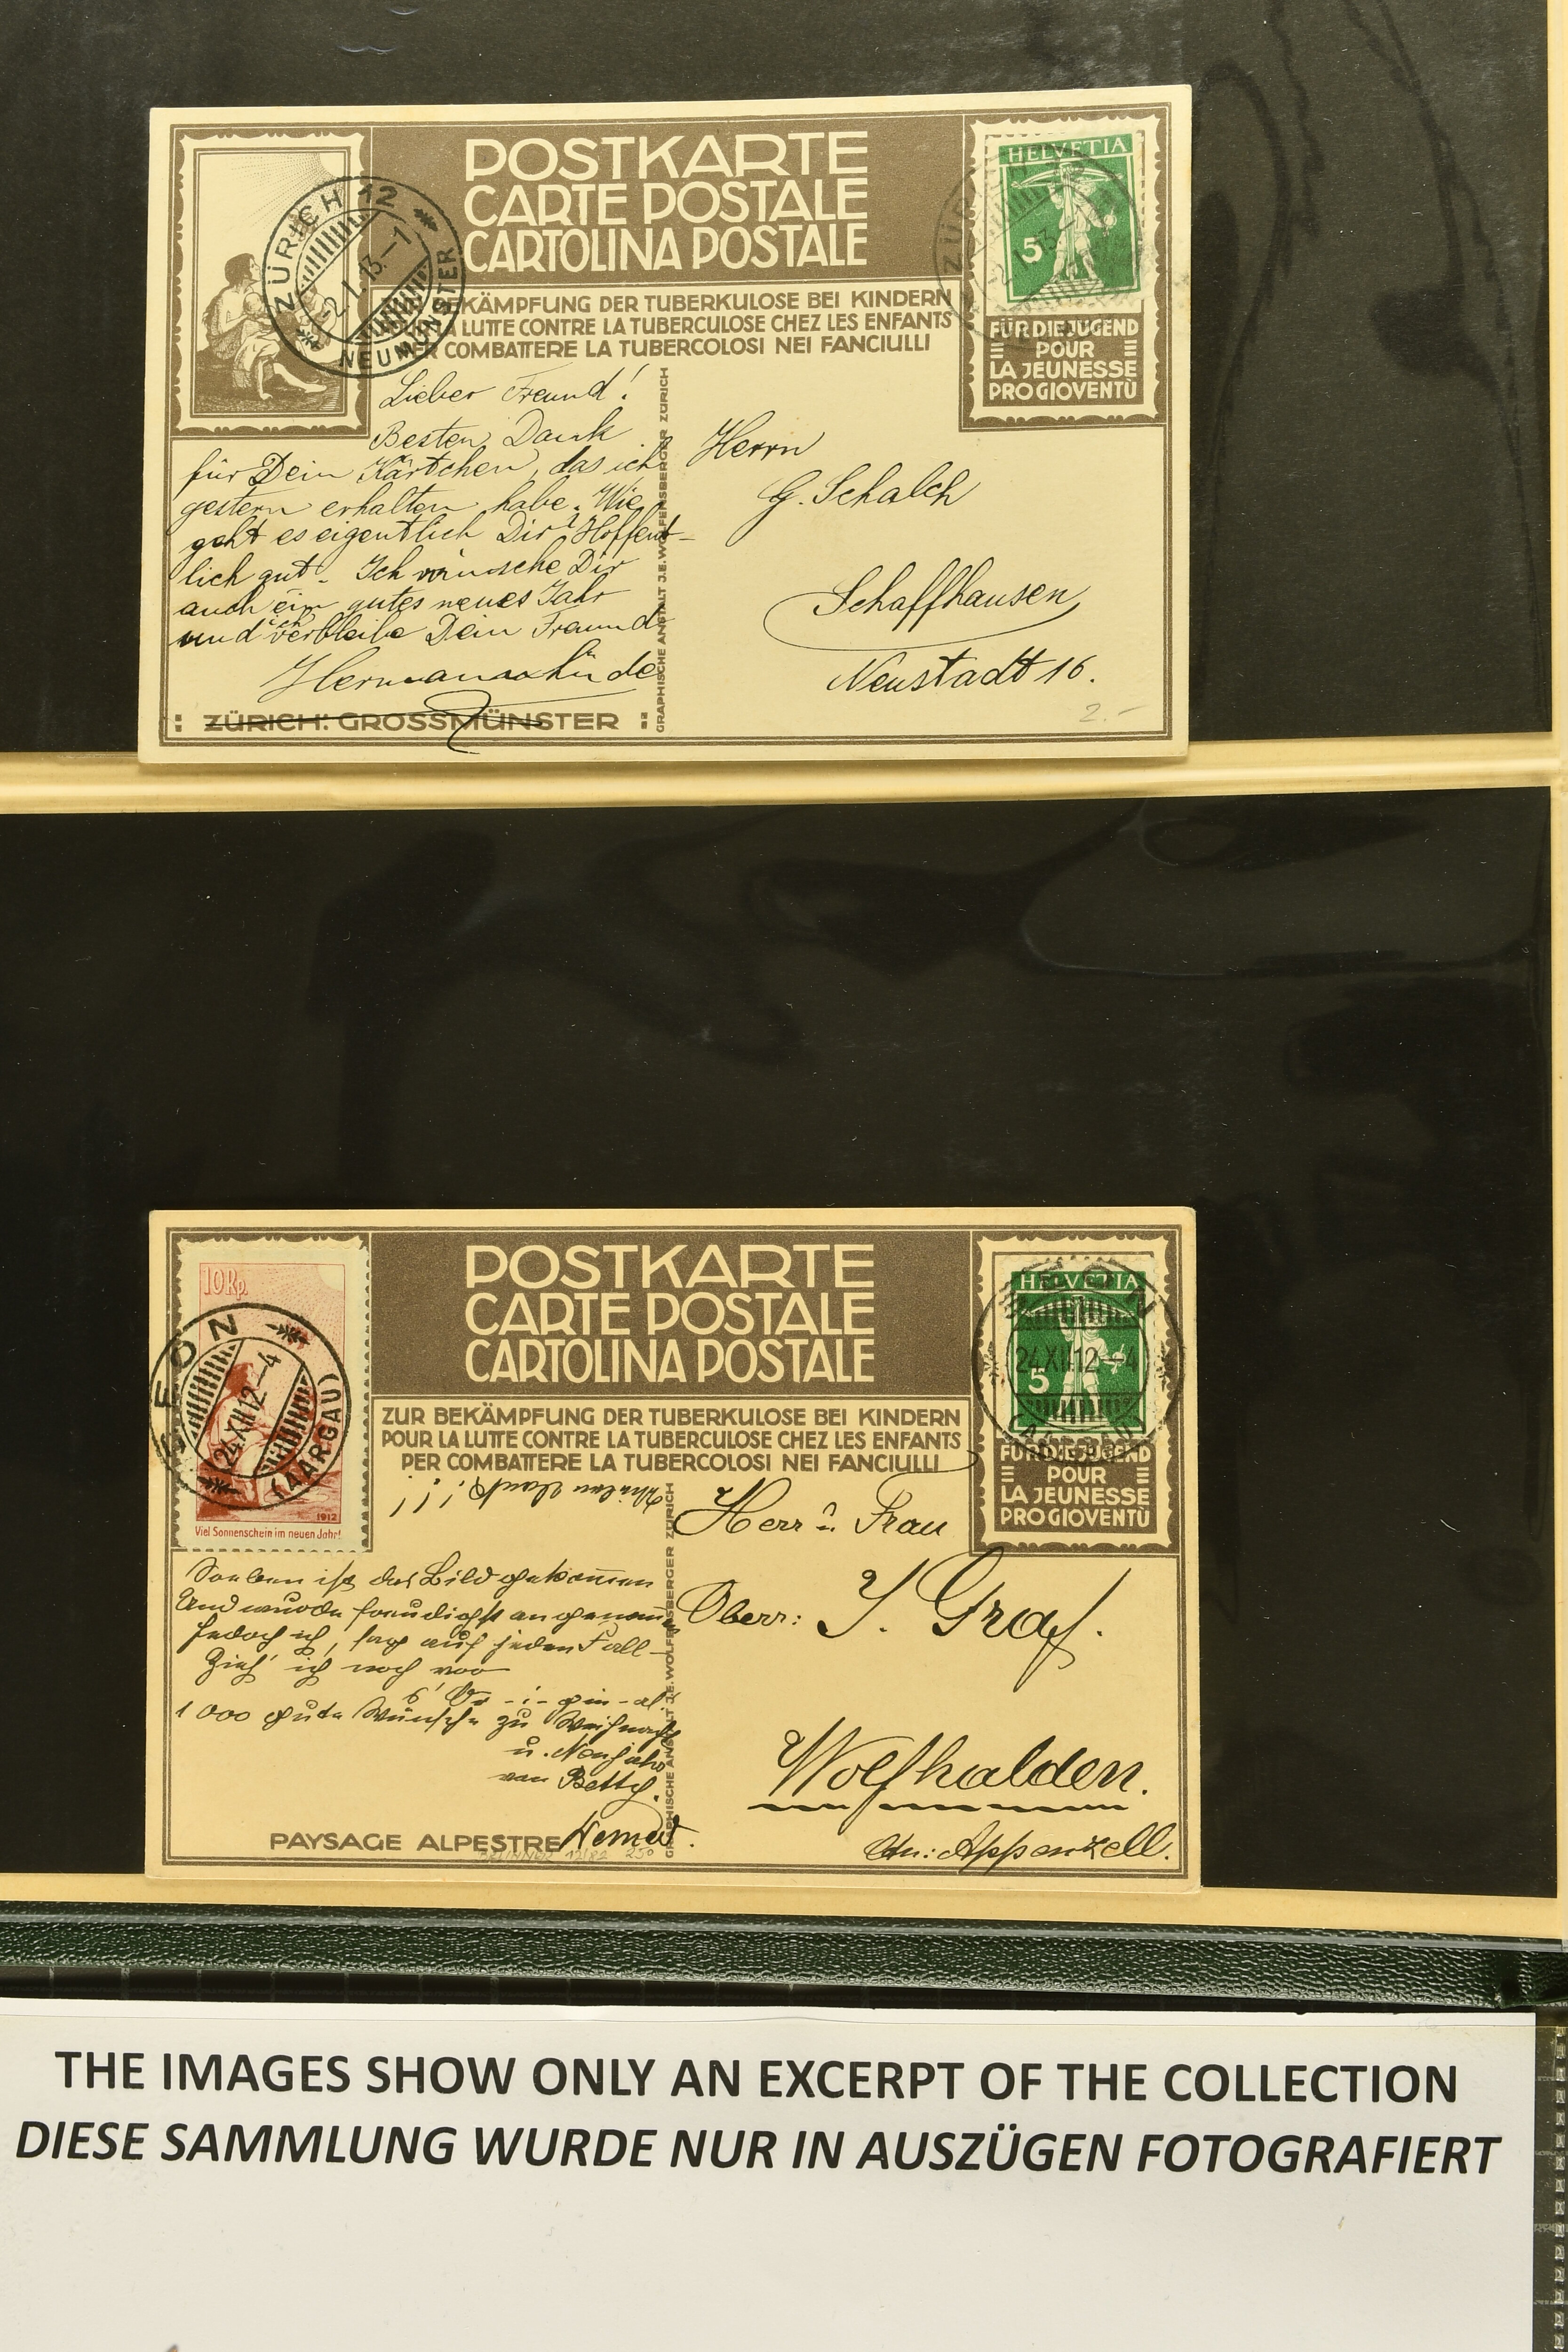 POSTKARTE
CARTE POSTALE
CARTOLINA POSTALE
BEKÄMPFUNG DER TUBERKULOSE BEI KINDERN
LA LUTTE CONTRE LA TUBERCULOSE CHEZ LES ENFANTS
PER COMBATTERE LA TUBERCOLOSI NEI FANCIULLI
ZÜRICH 12
-2.I.13.-1
NEUMÜNSTER
HELVETIA
5
FÜR DIE JUGEND
POUR
LA JEUNESSE
PRO GIOVENTÙ
Lieber Freund!
Besten Dank
für Dein Kärtchen, das ich
gestern erhalten habe. Wie
geht es eigentlich Dir? Hoffent-
lich gut. Ich wünsche Dir
auch ein gutes neues Jahr
und ich verbleibe Dein Freund
Hermann
ZÜRICH: GROSSMÜNSTER
GRAPHISCHE ANSTALT J.E. WOLFENSBERGER ZÜRICH
Herrn
G. Schalch
Schaffhausen
Neustadt 16.
2.-
POSTKARTE
CARTE POSTALE
CARTOLINA POSTALE
ZUR BEKÄMPFUNG DER TUBERKULOSE BEI KINDERN
POUR LA LUTTE CONTRE LA TUBERCULOSE CHEZ LES ENFANTS
PER COMBATTERE LA TUBERCOLOSI NEI FANCIULLI
10 Rp.
24.XII.12.-4
(AARGAU)
1912
Viel Sonnenschein im neuen Jahr!
HELVETIA
5
24.XII.12.-4
FÜR DIE JUGEND
POUR
LA JEUNESSE
PRO GIOVENTÙ
Vielen Dank!!!
Soeben ist das Bild gekommen
Und wurde freudigst angenommen
Jedoch ich, sag auf jeden Fall
Zieh' ich noch vor
s' Or-i-gin-al.
1000 gute Wünsche zu Weihnacht
u. Neujahr
von Betty.
PAYSAGE ALPESTRE
GRAPHISCHE ANSTALT J.E. WOLFENSBERGER ZÜRICH
Herr u. Frau
Oberr: J. Graf.
Wolfhalden.
Ctn: Appenzell.
THE IMAGES SHOW ONLY AN EXCERPT OF THE COLLECTION
DIESE SAMMLUNG WURDE NUR IN AUSZÜGEN FOTOGRAFIERT